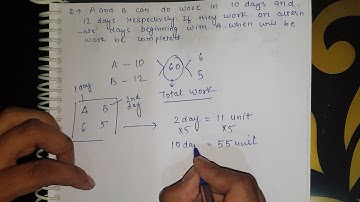 Q→ A and B can do work in 10 days and
12 days respectively. If they work on altern
-ate days beginning with A when will be
work be completed
A - 10 60 6
B - 12 5
Total Work
1 day
A B 2nd day
6 5
2 day = 11 unit
×5 ×5
10 day = 55 unit